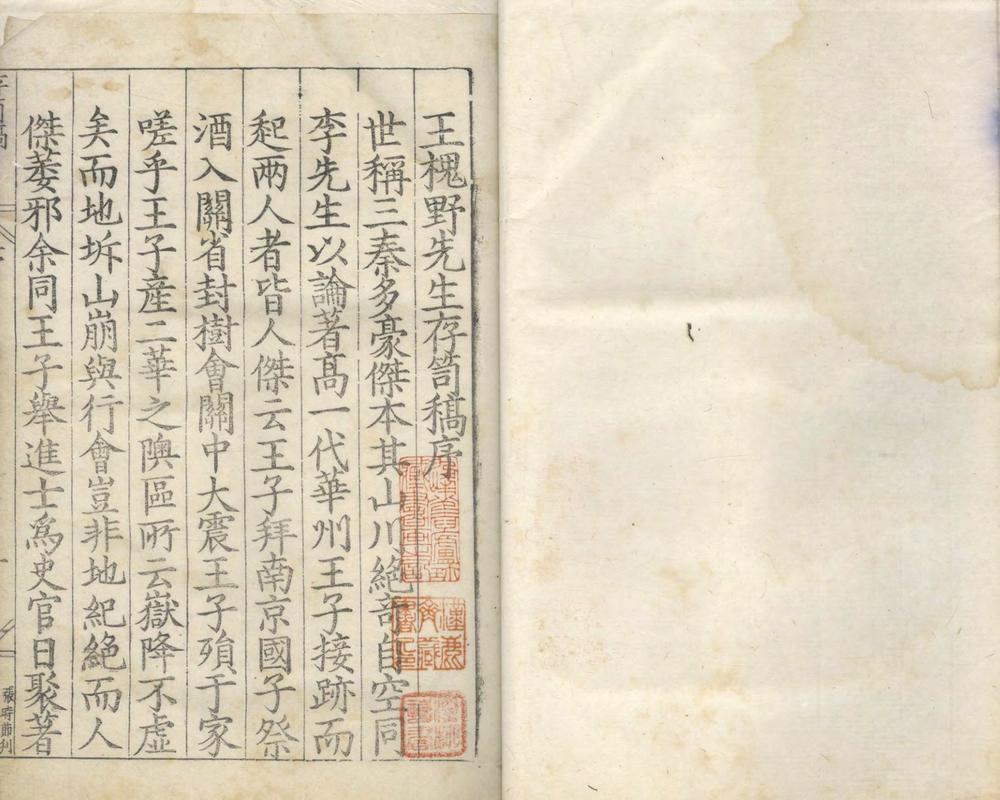 王槐野先生存笥稿序
世稱三秦多豪傑本其山川絕奇自空同
李先生以論著髙一代華州王子接跡而
起兩人者皆人傑云王子拜南京國子祭
酒入關省封樹會關中大震王子殞于家
嗟乎王子産二華之隩區所云嶽降不虛
矣而地坼山崩與行會豈非地紀絕而人
傑萎邪余同王子舉進士爲史官日聚著